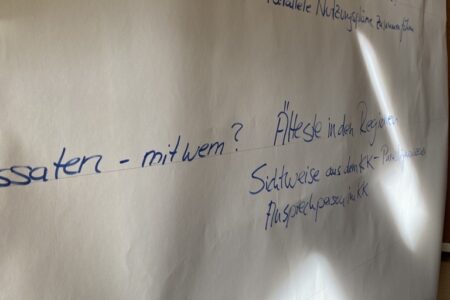 parallele Nutzungspläne zusammenführen
ssaten - mit wem?
Älteste in den Regionen
Sichtweise aus dem KK-
Ansprechperson im KK